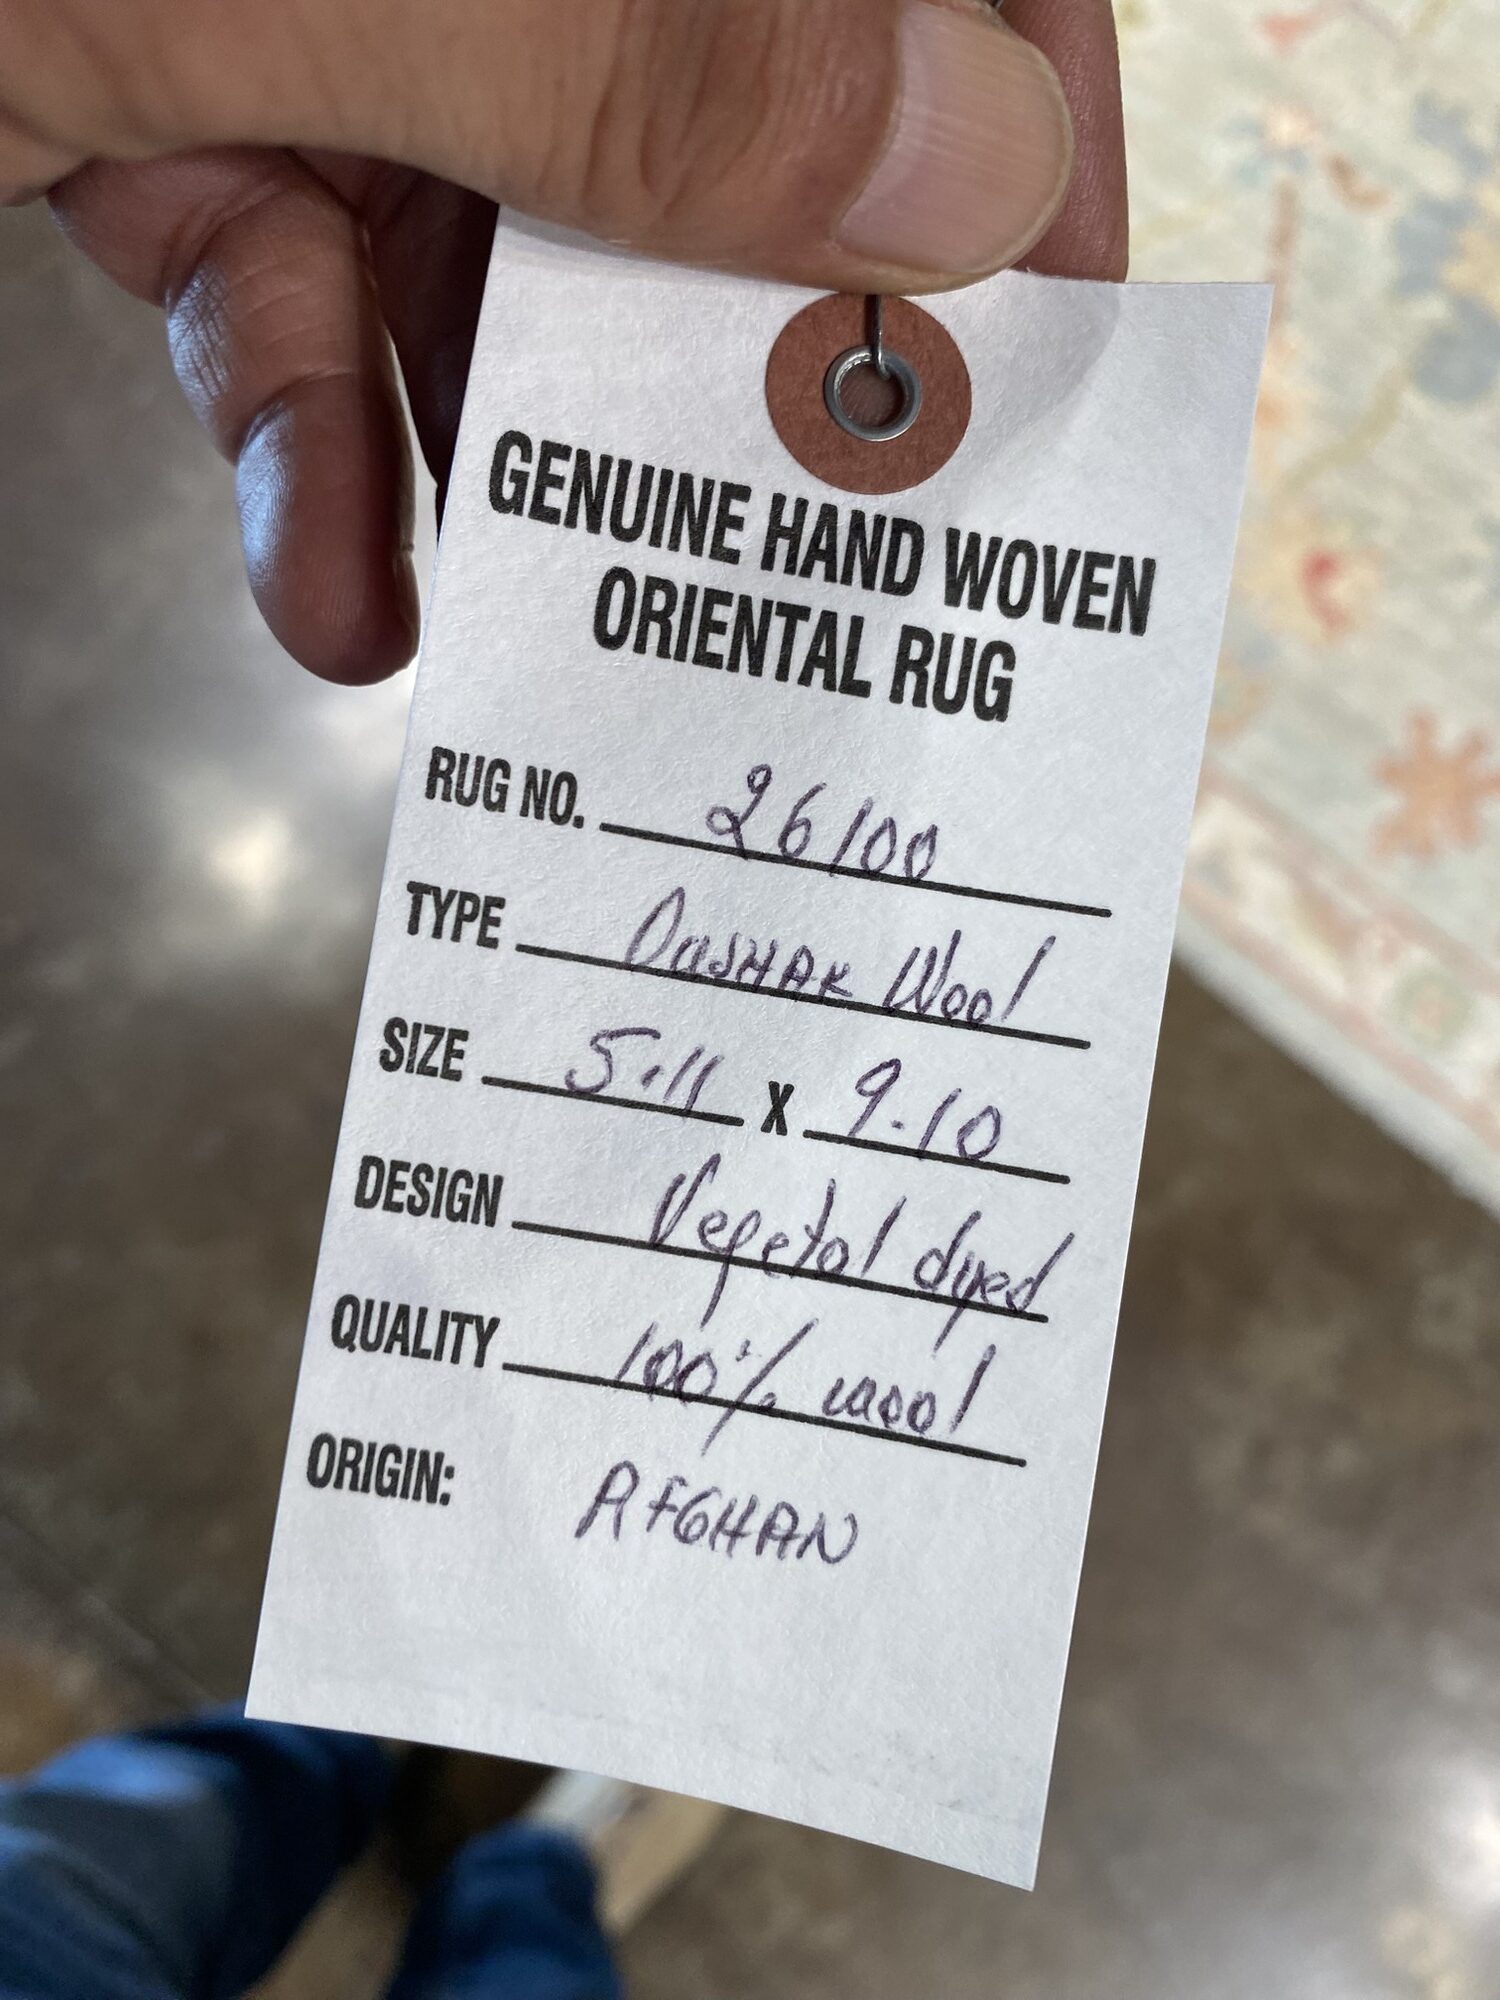 GENUINE HAND WOVEN
ORIENTAL RUG
RUG NO. 26100
TYPE OUSHAK Wool
SIZE 5.11 X 9.10
DESIGN Vegetal dyed
QUALITY 100% wool
ORIGIN: AFGHAN